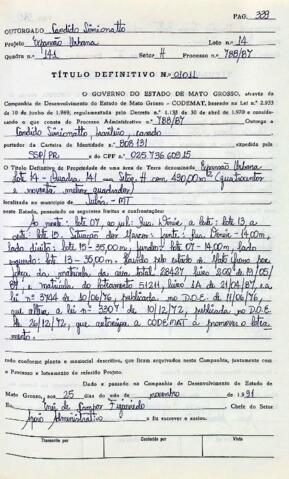 PAG. 339
OUTORGADO Candido Simionatto
Projeto Expansão Urbana Lote n.o 14
Quadra n.o 141 Setor H Processo n.o 788/87
TÍTULO DEFINITIVO N.o 01011
O GOVERNO DO ESTADO DE MATO GROSSO, através da
Companhia de Desenvolvimento do Estado de Mato Grosso - CODEMAT, baseado na Lei N.o 2.933
de 10 de junho de 1.969, regulamentada pelo Decreto N.o 1.138 de 30 de abril de 1.970 e considerando
o que consta do Processo Administrativo n.o 788/87 Outorga a
Candido Simionatto, brasileiro, casado
portador da Carteira de Identidade n.o 808131 expedida pela
SSP/PR e do CPF n.o 025 736 609 15
o Título Definitivo de Propriedade de uma área de Terra denominada Expansão Urbana
lote 14 - Quadra 141 Setor H com 490,00 m2 (quatrocentos
e noventa metros quadrados)
localizada no município de - MT
neste Estado, possuindo os seguintes limites e confrontações:
Ao norte: lote 07 ao sul: Rua lote: 13, a
lote: 15. Situação frente: Rua - 14,00m,
lado direito: lote 15 - 35,00m, fundos: lote 07 - 14,00m, lado
esquerdo: lote 13 - 35,00m. pelo estado de Mato Grosso por
força da matrícula da área total 28427 livro 19/05/
87, e matrícula do loteamento 51211, livro 2A de 21/04/87 e a
lei n.o 3704 de 10/06/76, publicada no D.O.E. de 11/06/76,
que altera a lei n.o 3307 de 10/12/72, publicada no D.O.E.
de 26/12/72, que autoriza a CODEMAT a promover o lotea
mento.
tudo conforme planta e memorial descritivo, que ficam arquivados nesta Companhia, juntamente com
o Processo e loteamento do referido Projeto.
Dado e passado na Companhia de Desenvolvimento do Estado de
Mato Grosso, aos 25 dias do mês de novembro de 1.991
Eu Inês de Campos Figueiredo Chefe do Setor
Apoio Administrativo o fiz escrever e assino.
Transcrito por Conferido por Visto